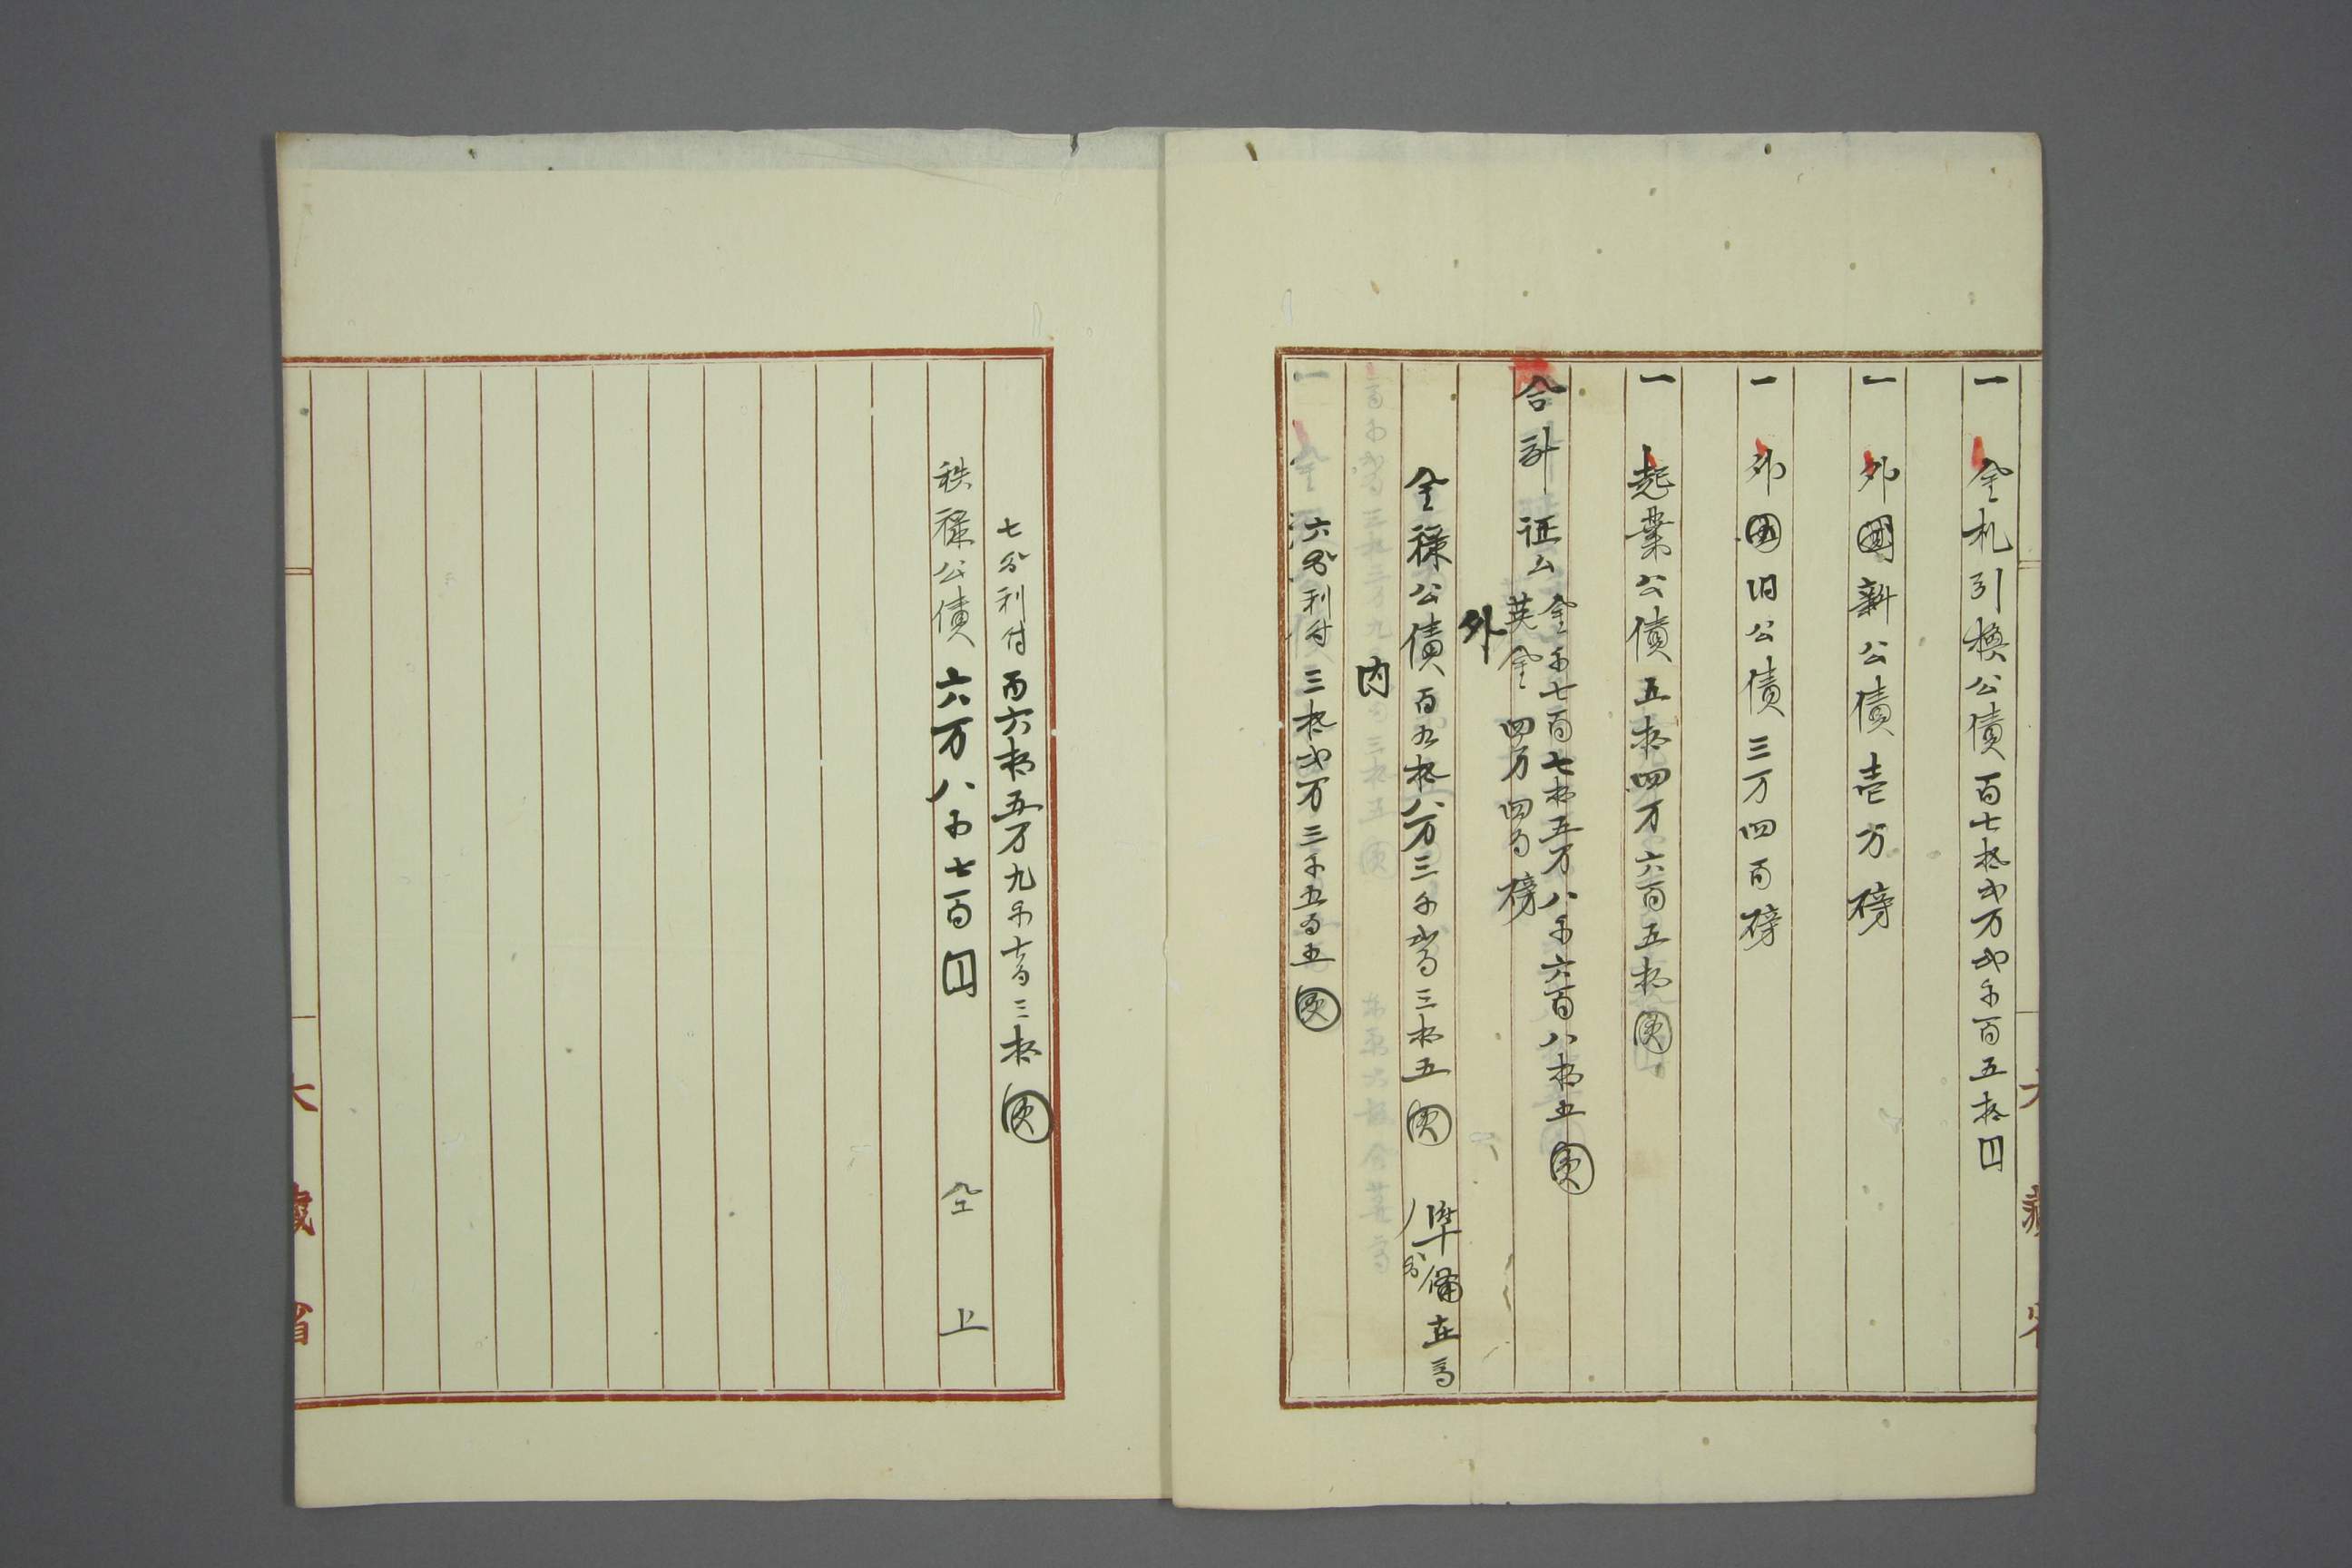 一 金札引換公債百七拾弐万弐千百五拾円
一 外国新公債壱万磅
一 外国旧公債三万四百磅
一 起業公債五拾四万六百五拾円
合計 証公 金千七百七拾五万八千六百八拾五円
英金四万四百磅
外
金禄公債百九拾八万三千 三拾五円 準備在高
内
六分利付三拾弐万三千五百五円
七分利付百六拾五万九千七百三拾円
秩禄公債六万八千七百円 仝上
大蔵省